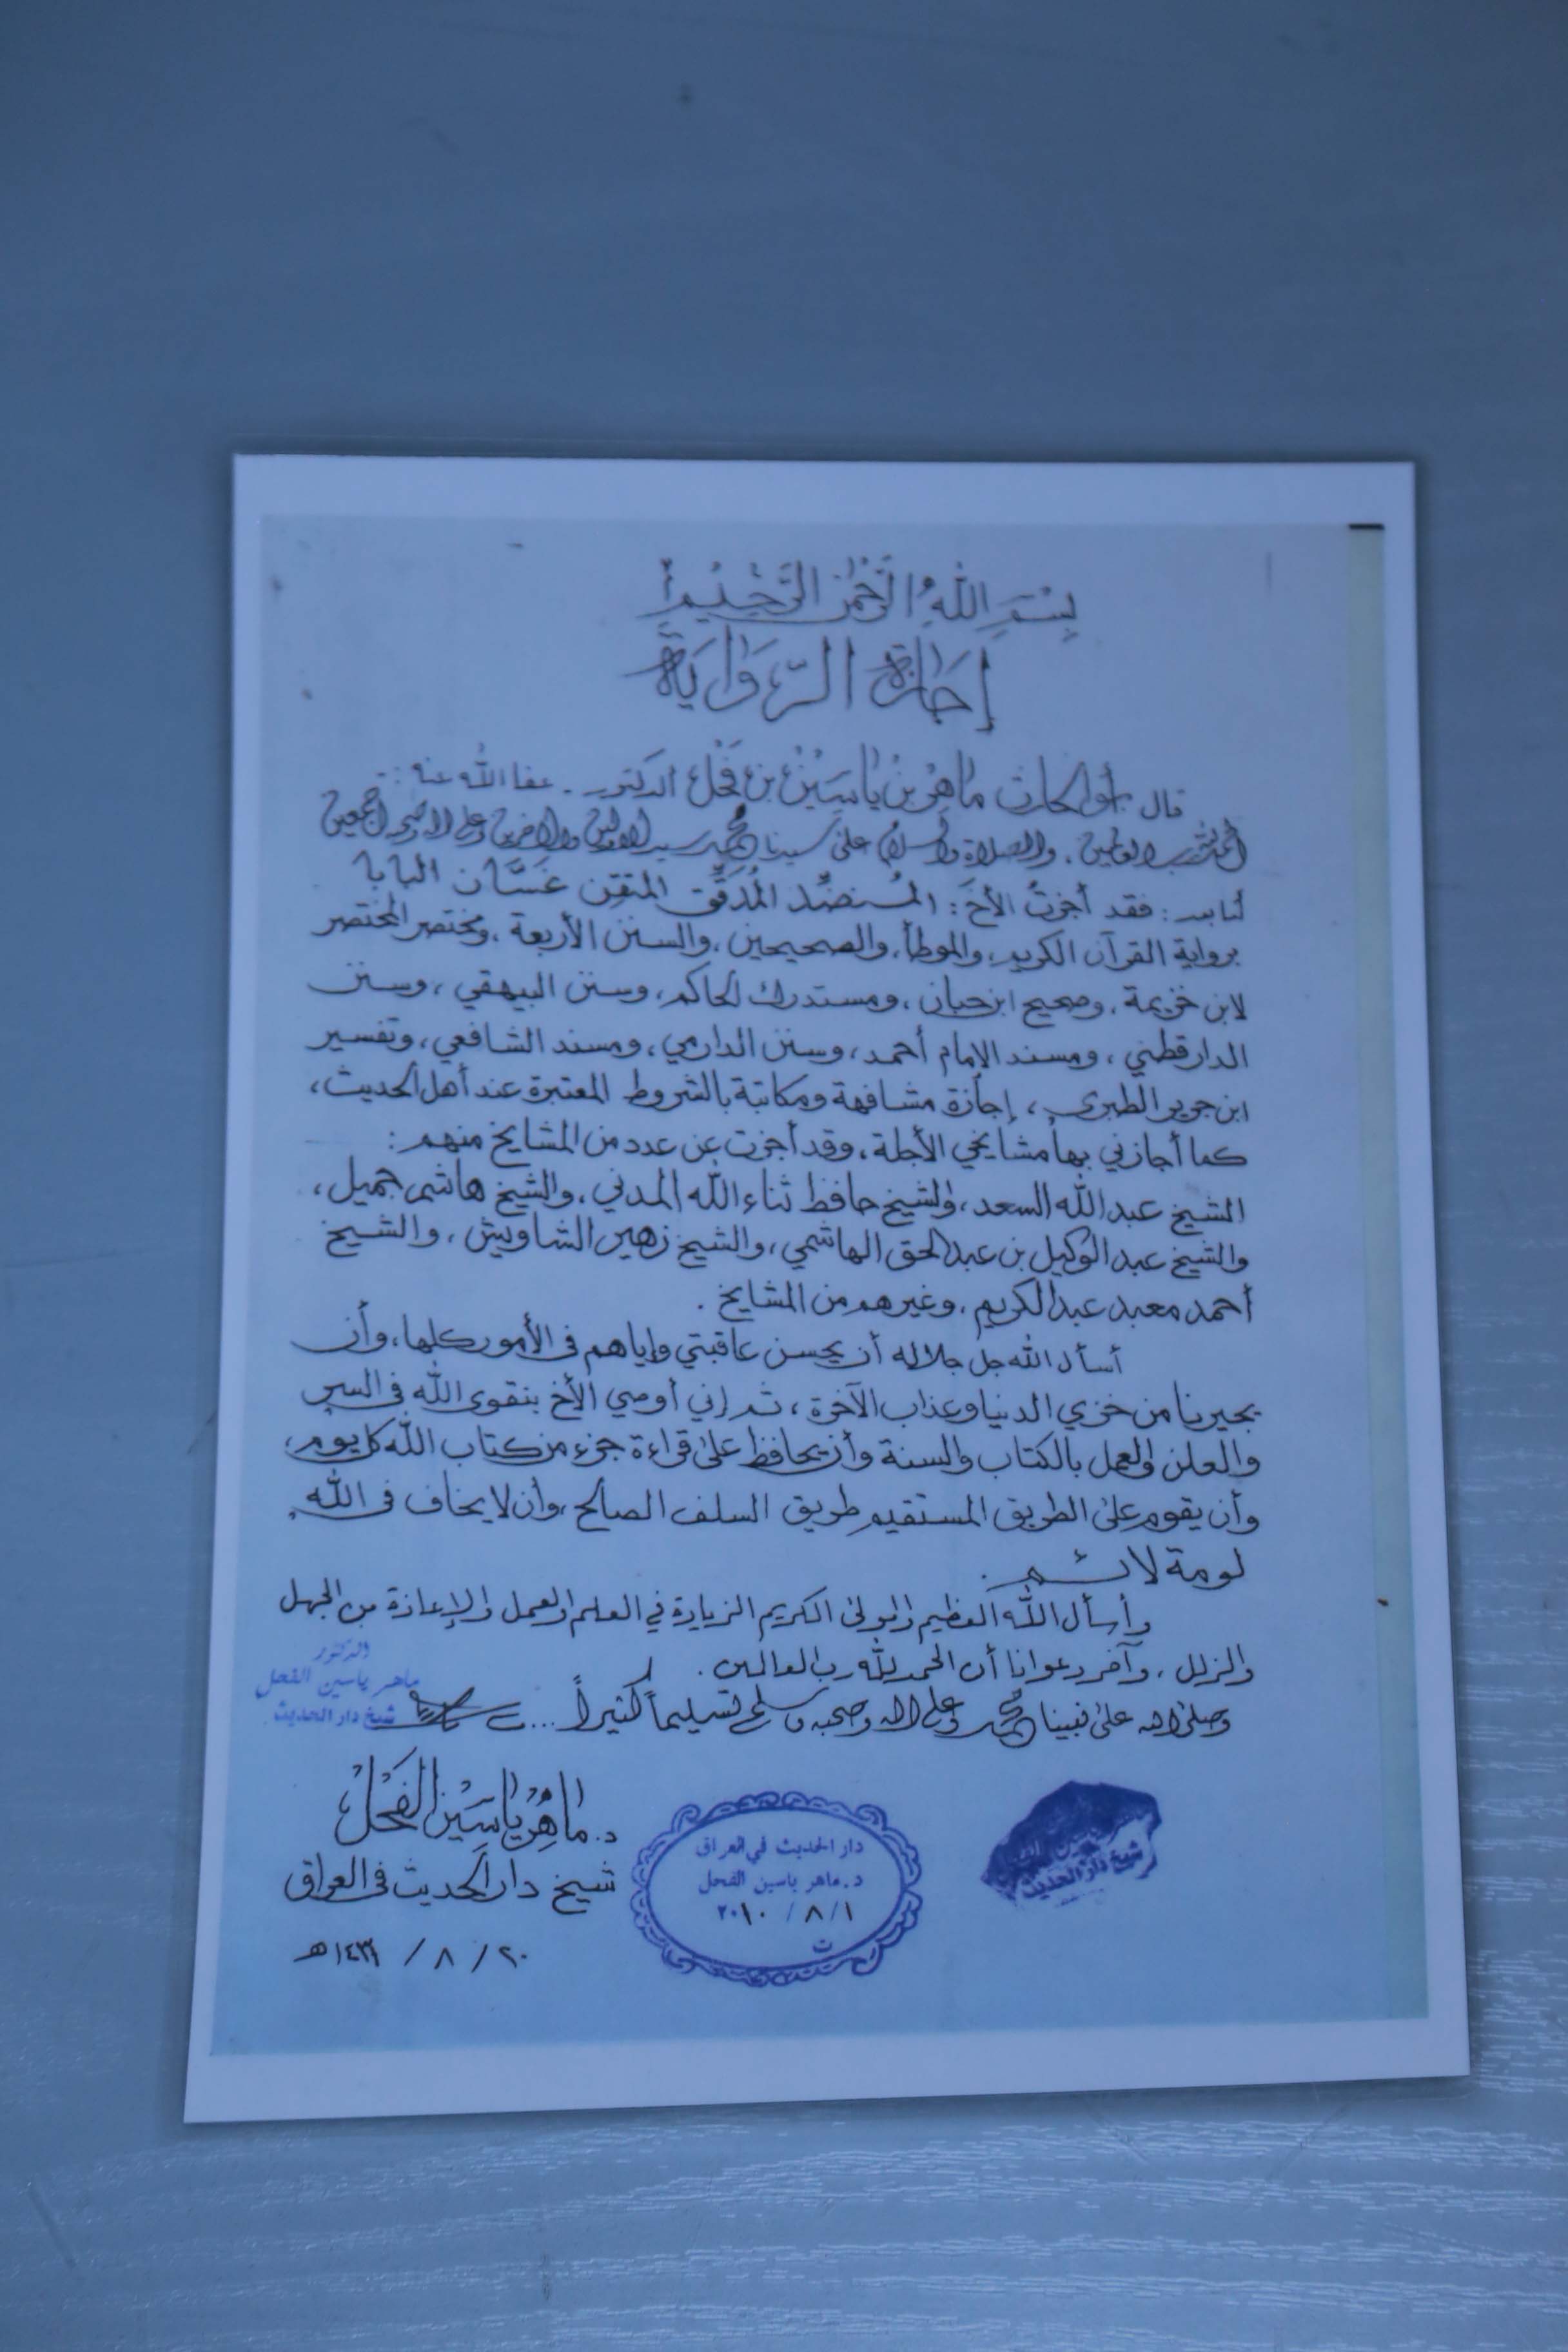 بِسْمِ اللهِ الرَّحْمٰنِ الرَّحِيْمِ
إِجَازَة الرِّوَايَة
قال أبو الحارث مَاهِرُ بنُ يَاسِيْنَ بن فَحْل الدكتور . عفا الله عنه :
الحمد لله رب العالمين ، والصلاة والسلام على سيدنا محمد سيد الأولين والآخرين وعلى آله وصحبه أجمعين
أما بعد : فقد أجزتُ الأخَ : المُنضِّد المُدَقِّق المتقن غَسَّان البابا
برواية القرآن الكريم ، والموطأ ، والصحيحين ، والسنن الأربعة ، ومختصر المختصر
لابن خزيمة ، وصحيح ابن حبان ، ومستدرك الحاكم ، وسنن البيهقي ، وسنن
الدارقطني ، ومسند الإمام أحمد ، وسنن الدارمي ، ومسند الشافعي ، وتفسير
ابن جرير الطبري ، إجازة مشافهة ومكاتبة بالشروط المعتبرة عند أهل الحديث ،
كما أجازني بها مشايخي الأجلة ، وقد أجزت عن عدد من المشايخ منهم :
الشيخ عبد الله السعد ، والشيخ حافظ ثناء الله المدني ، والشيخ هاشم جميل ،
والشيخ عبد الوكيل بن عبد الحق الهاشمي ، والشيخ زهير الشاويش ، والشيخ
أحمد معبد عبد الكريم ، وغيرهم من المشايخ .
أسأل الله جل جلاله أن يحسن عاقبتي وإياهم في الأمور كلها ، وأن
يجيرنا من خزي الدنيا وعذاب الآخرة ، ثم إني أوصي الأخ بتقوى الله في السر
والعلن والعمل بالكتاب والسنة وأن يحافظ على قراءة جزء من كتاب الله كل يوم ،
وأن يقوم على الطريق المستقيم طريق السلف الصالح ، وأن لا يخاف في الله
لومة لائم .
وأسأل الله العظيم المولى الكريم الزيادة في العلم والعمل والإعاذة من الجهل
والزلل ، وآخر دعوانا أن الحمد لله رب العالمين .
وصلى الله على نبينا محمد وعلى آله وصحبه وسلم تسليماً كثيراً ...
الدكتور
ماهر ياسين الفحل
شيخ دار الحديث
د. مَاهِرُ يَاسِيْن الفَحْل
شيخ دار الحديث في العراق
٢٠ / ٨ / ١٤٣١ هـ
دار الحديث في العراق
د. ماهر ياسين الفحل
١ / ٨ / ٢٠١٠
ت
شيخ دار الحديث